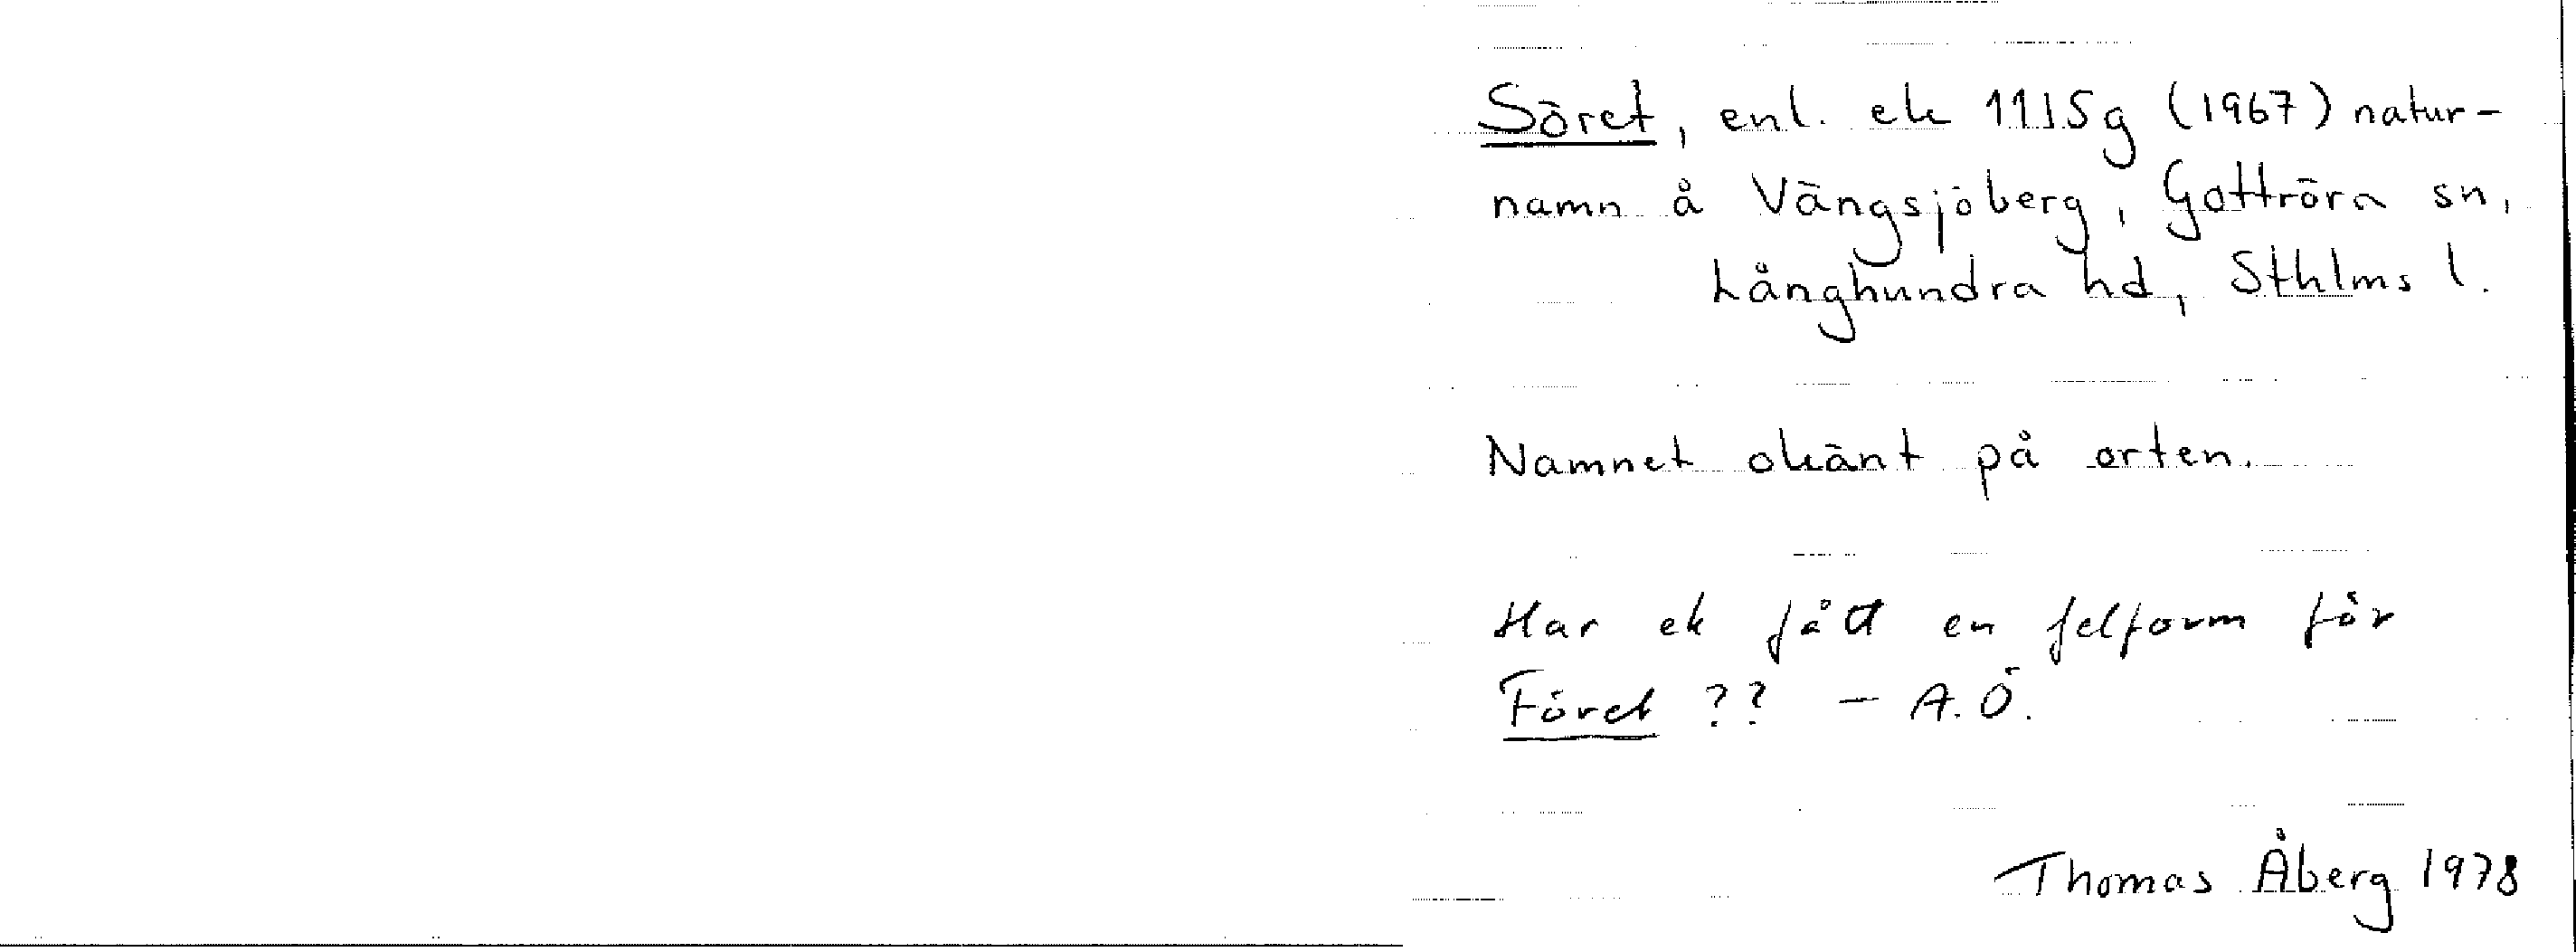 Söret, enl. ek 11I5g (1967) natur-
namn å Vängsjöberg, Gottröra sn,
Långhundra hd, Sthlms l.
Namnet okänt på orten.
Har ek fått en felform för
Föret ?? – A.Ö.
Thomas Åberg 1978